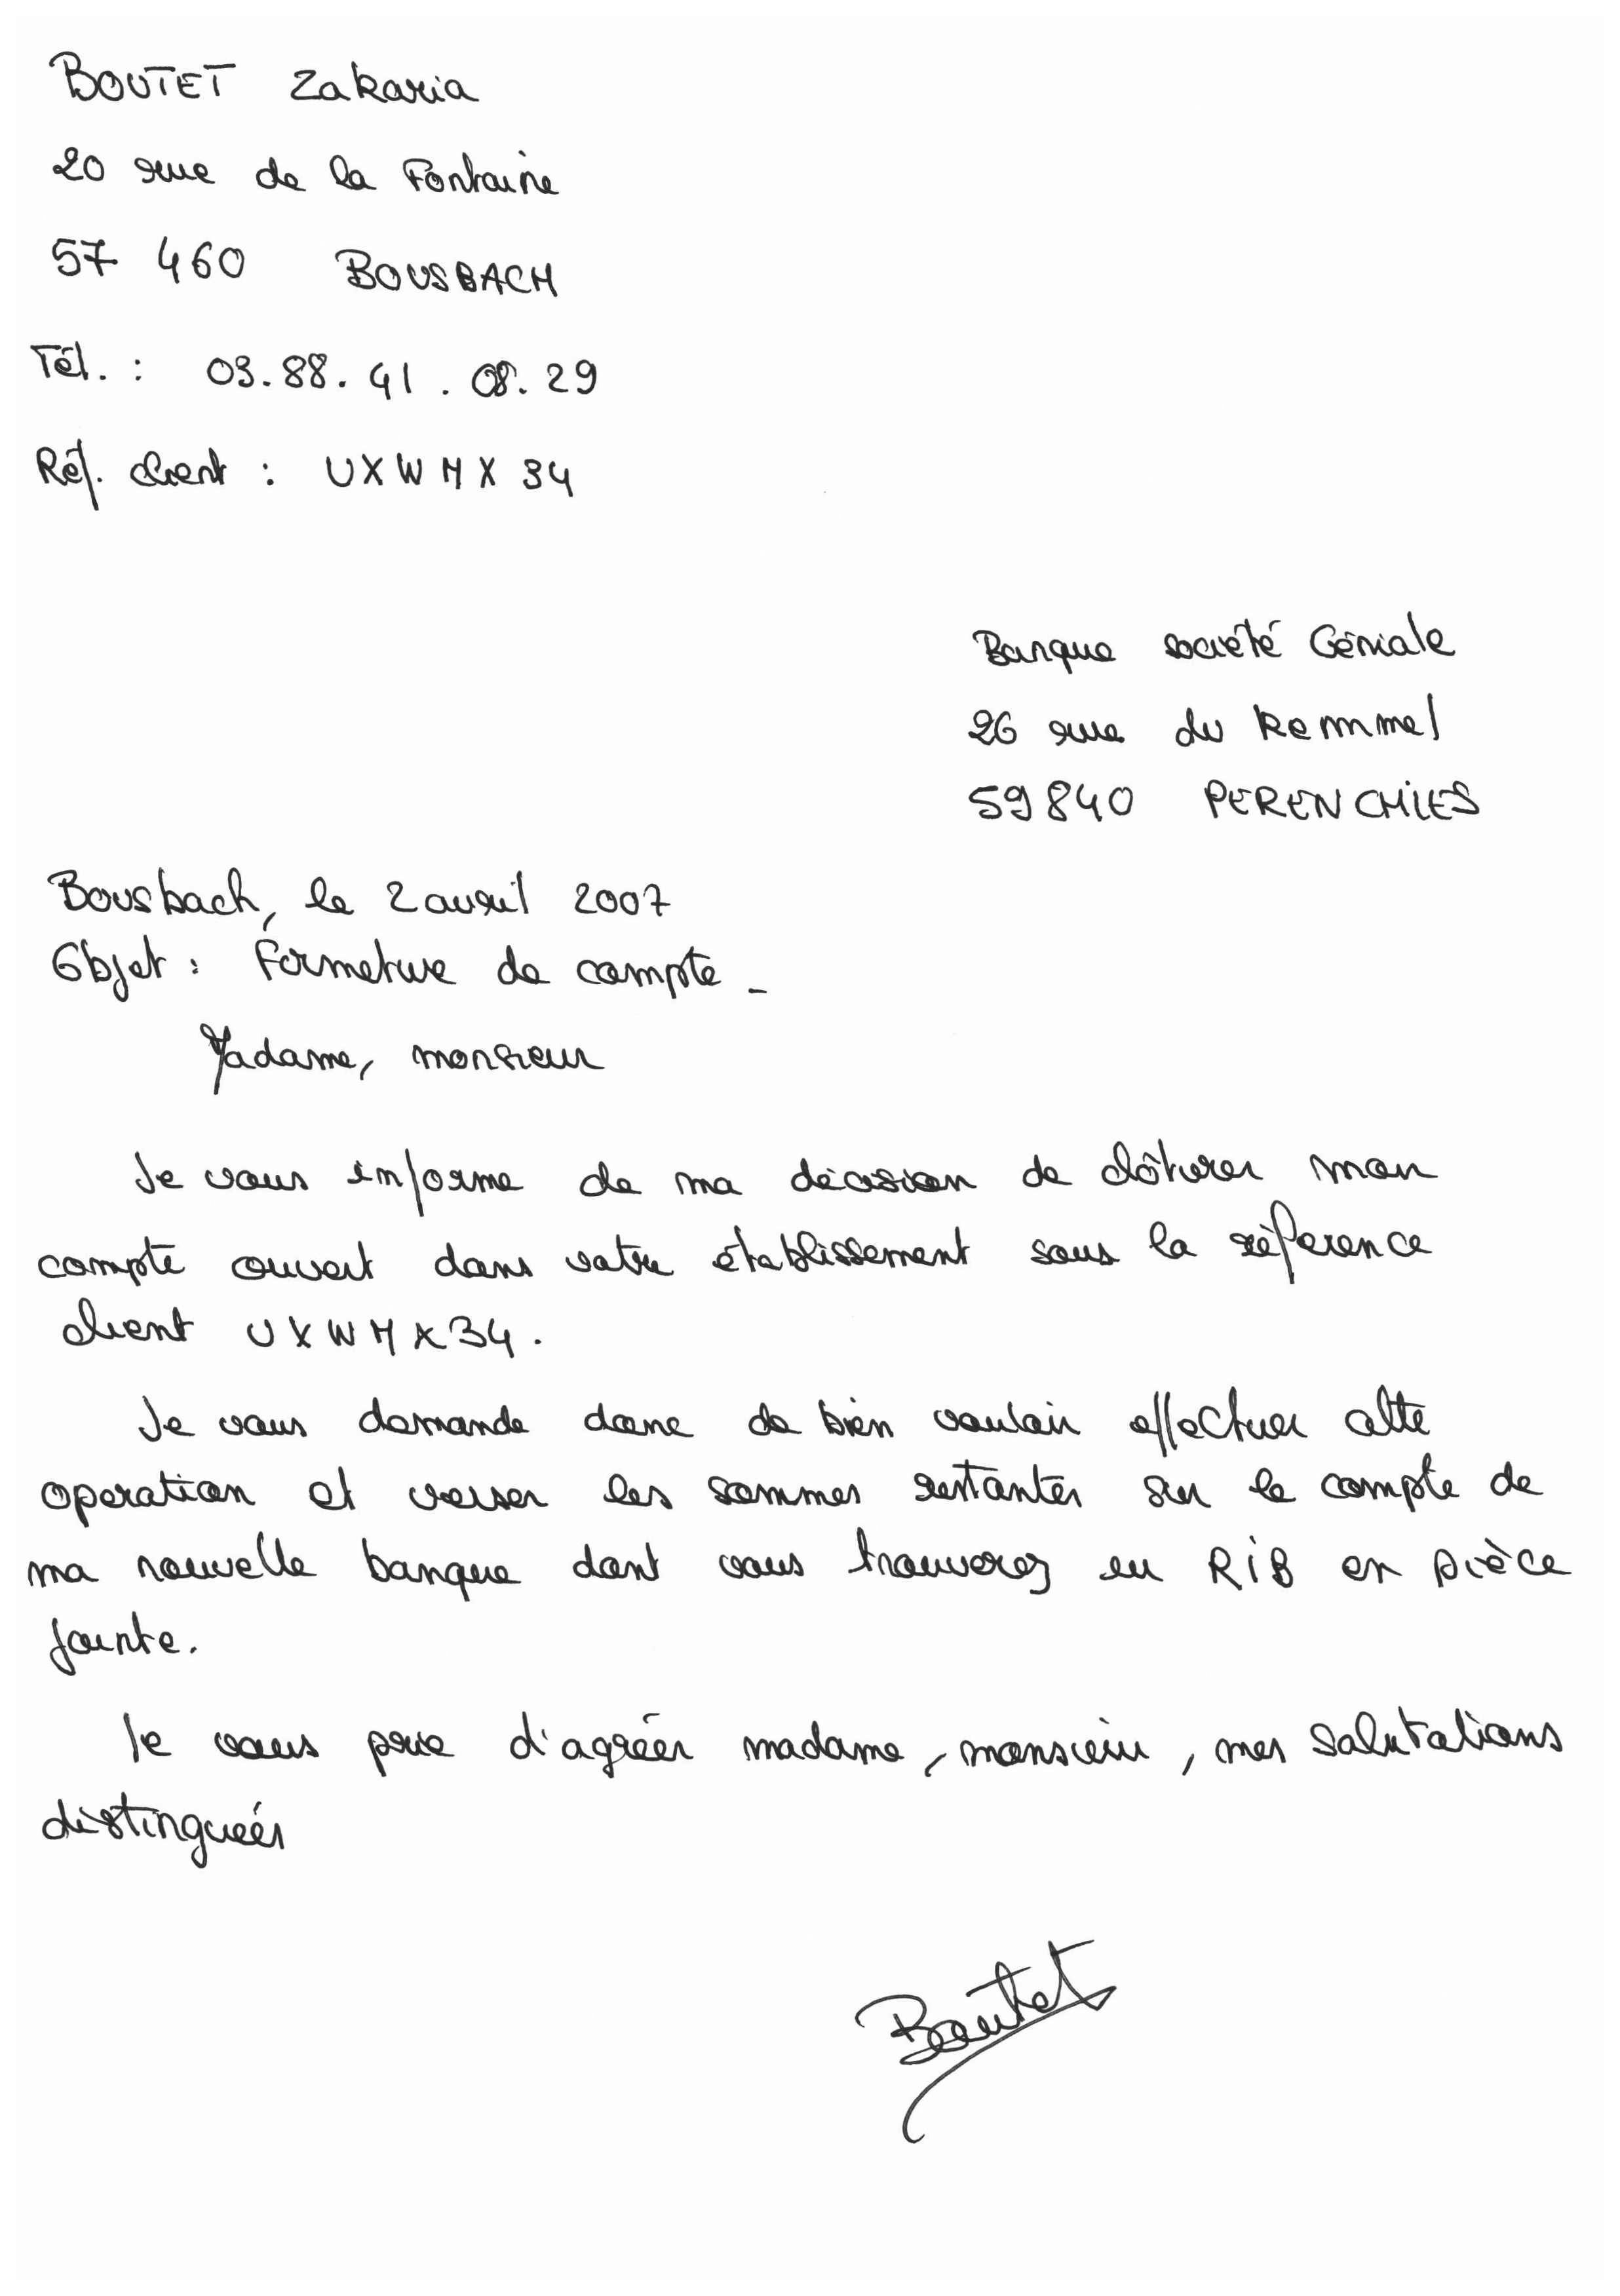 BOUTET Zakaria
20 rue de la Fontaine
57 460 BOUSBACH
Tél. : 03.88.41.08.29
Réf. client : UXWHX 34
Banque société Géniale
26 rue du Kemmel
59840 PERENCHIES
Bousbach, le 2 avril 2007
Objet : Fermeture de compte.
Madame, monsieur
Je vous informe de ma décision de clôturer mon
compte ouvert dans votre établissement sous la référence
client UXWHX34.
Je vous demande donc de bien vouloir effectuer cette
operation et verser les sommes restantes sur le compte de
ma nouvelle banque dont vous trouverez un RiB en pièce
jointe.
Je vous prie d'agréer madame, monsieur, mes salutations
distinguées
Boutet